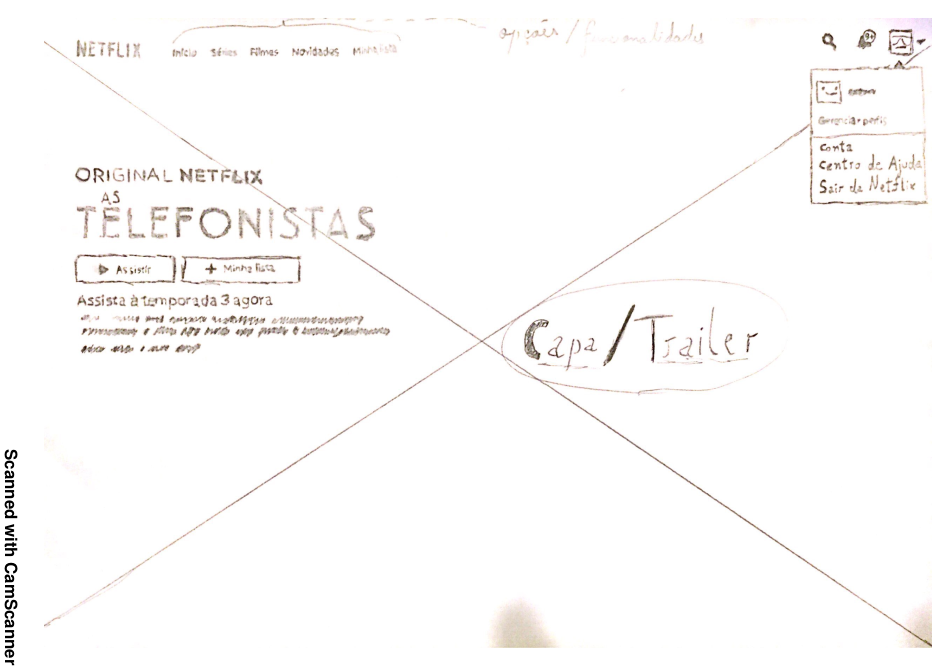 opções / funcionalidades
NETFLIX Início Séries Filmes Novidades Minha lista
9+
Gerenciar perfis
Conta
Centro de Ajuda
Sair da Netflix
ORIGINAL NETFLIX
AS
TELEFONISTAS
Assistir + Minha lista
Assista à temporada 3 agora
Capa / Trailer
Scanned with CamScanner